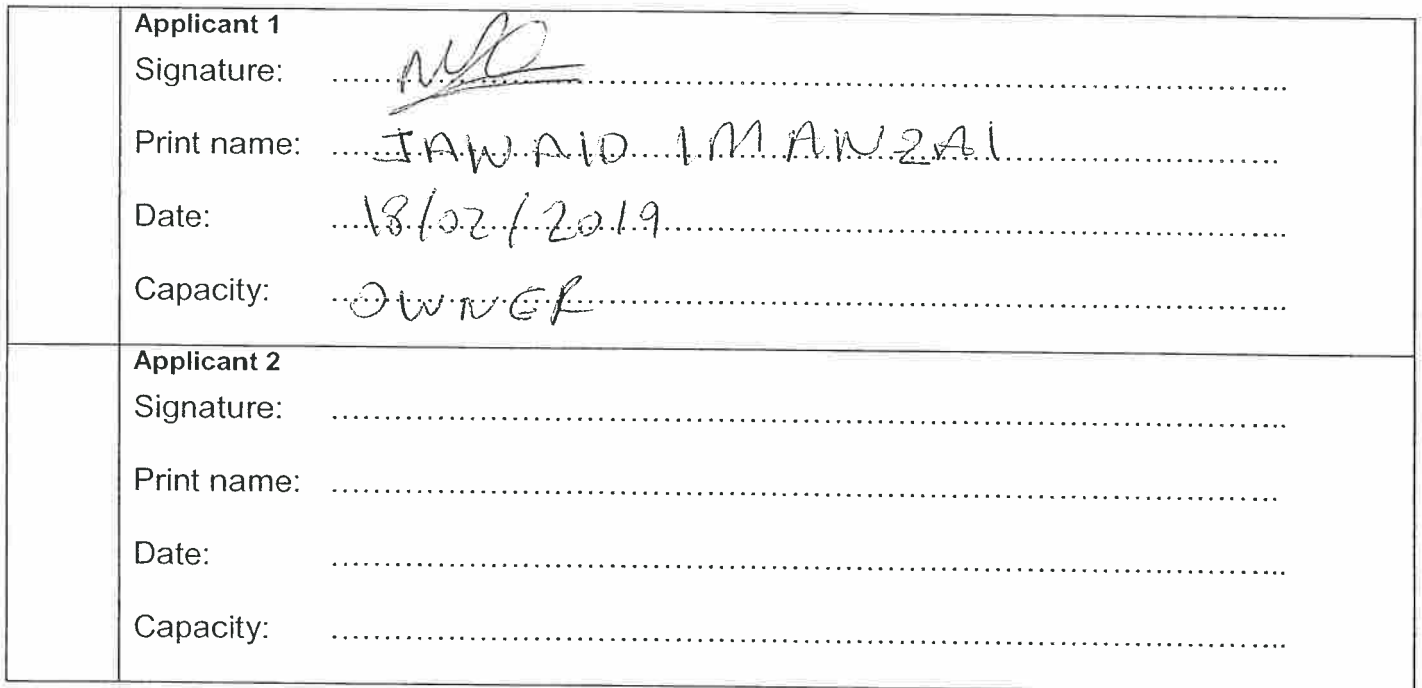 Applicant 1
Signature: ....................
Print name: JAWAID IMANZAI
Date: 18/02/2019
Capacity: OWNER
Applicant 2
Signature: ....................
Print name: ....................
Date: ....................
Capacity: ....................